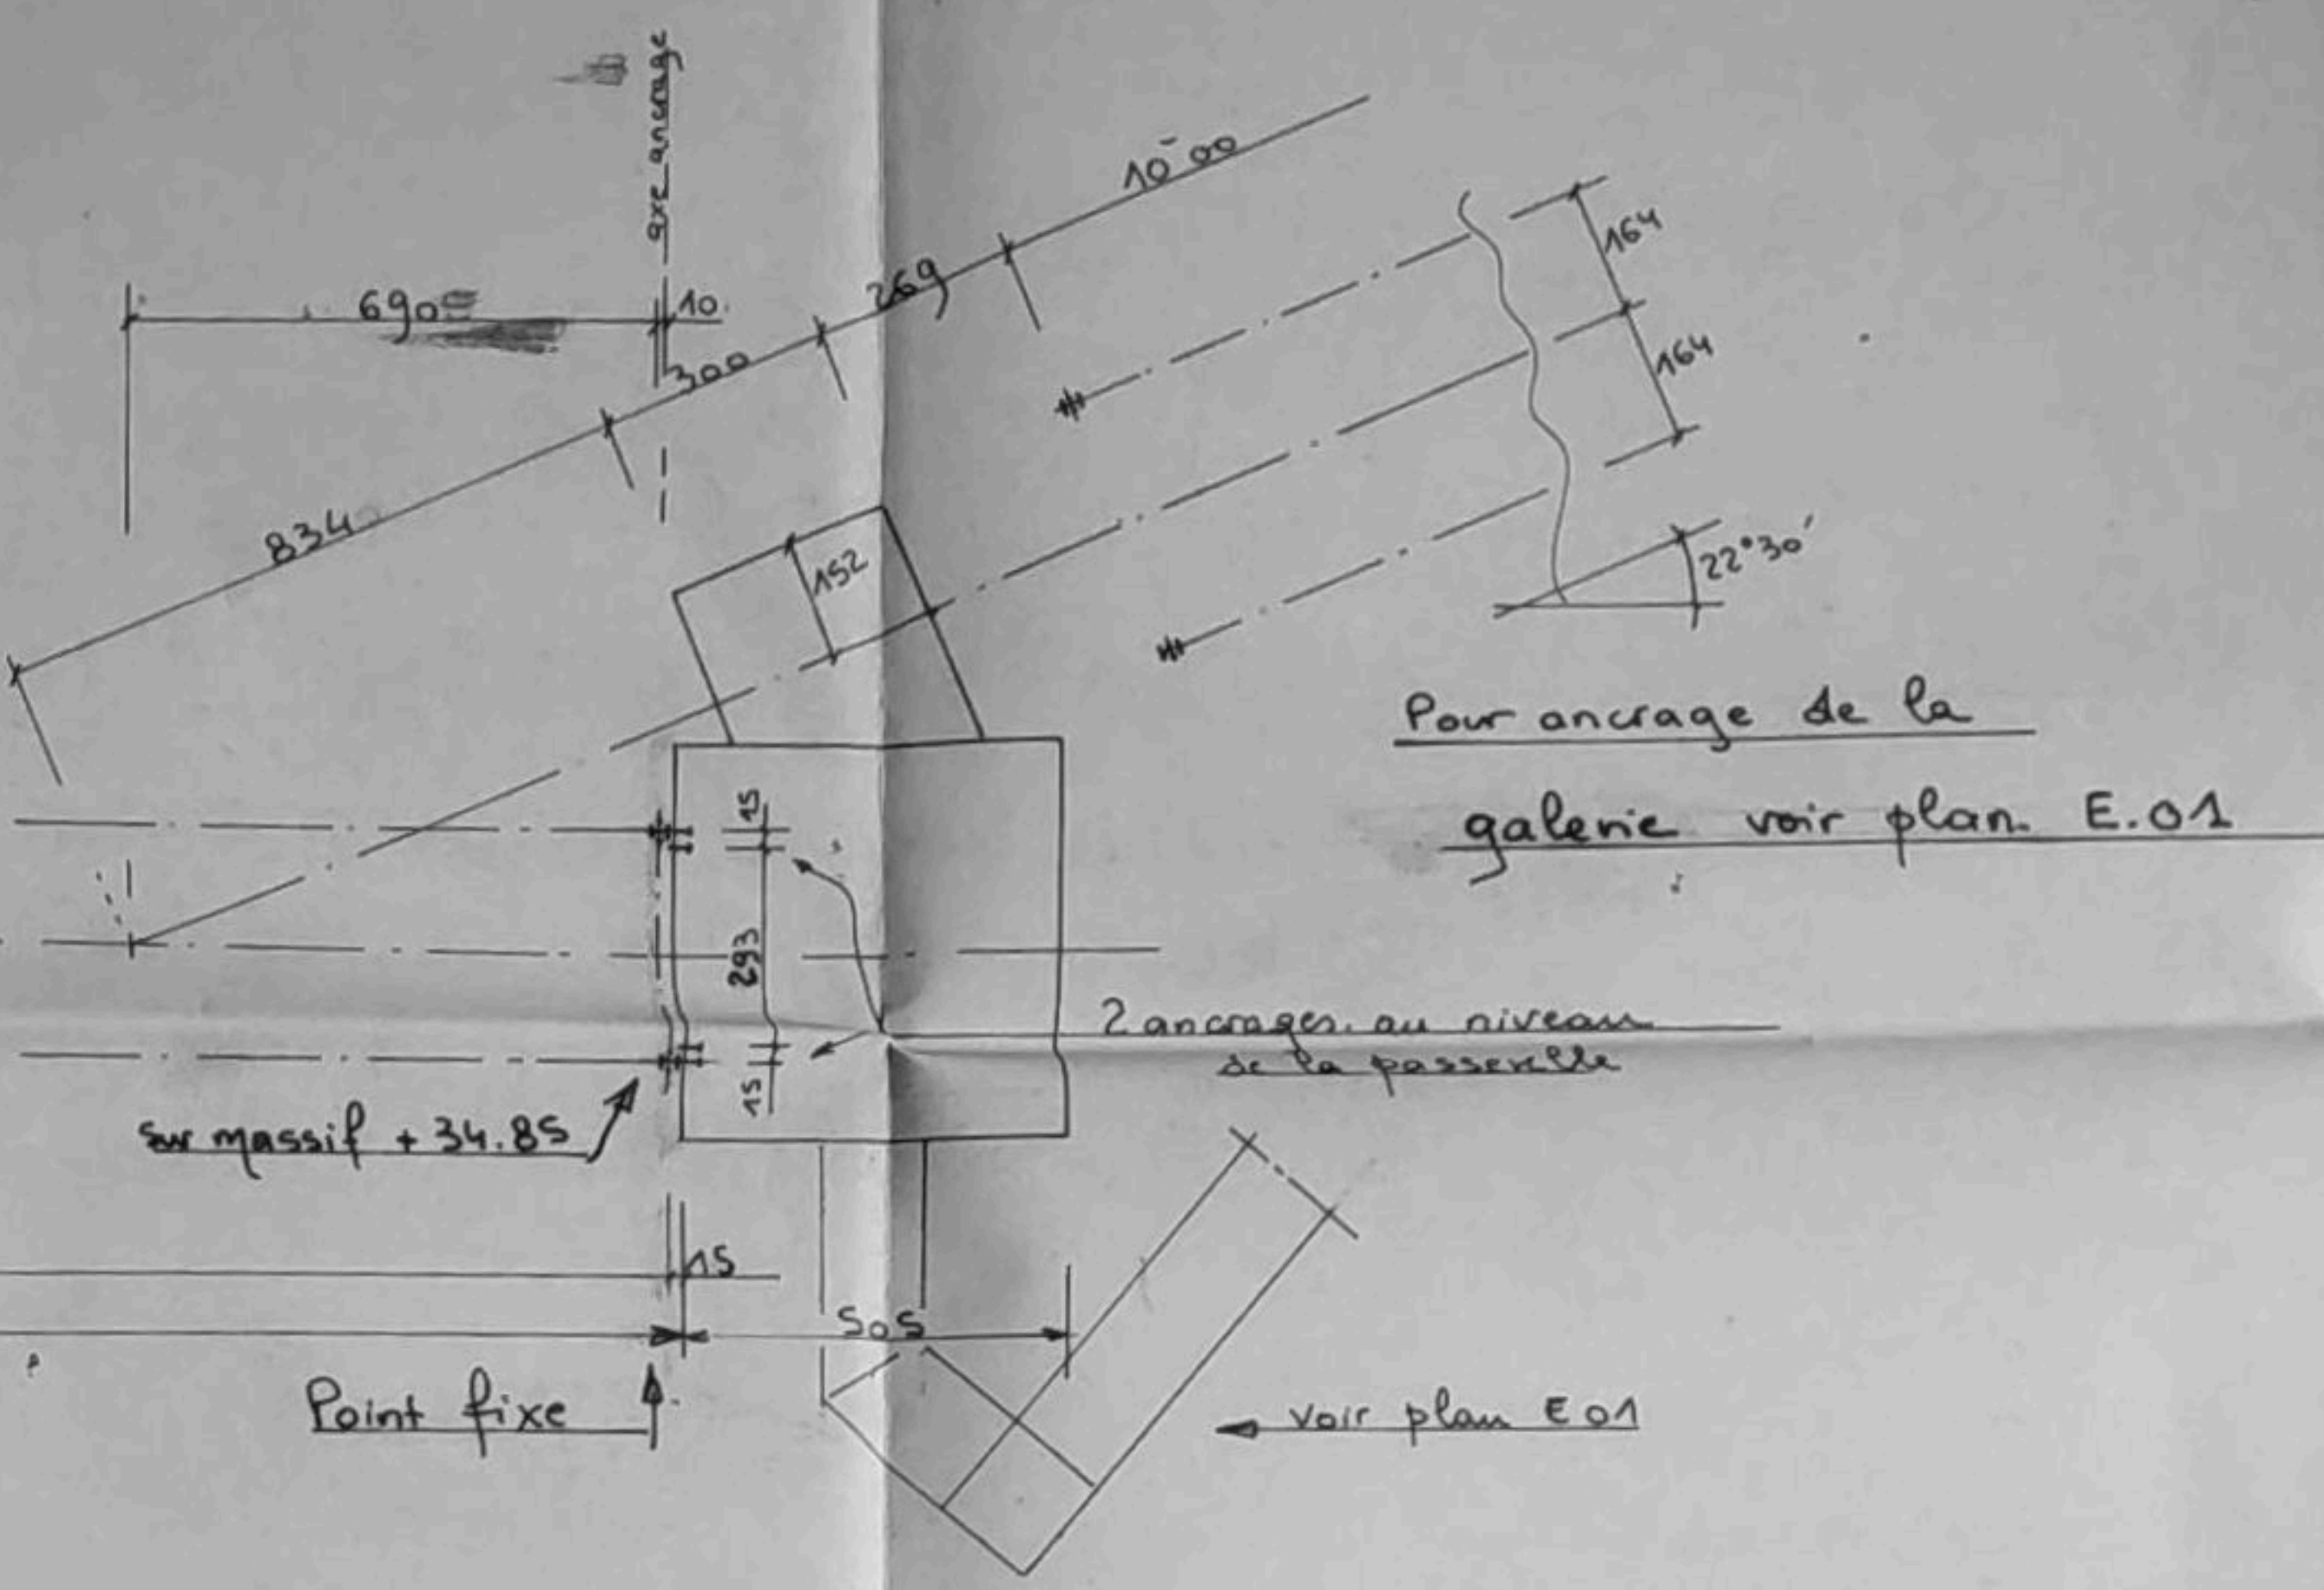 axe ancrage
10‾00
690
10
269
300
834
164
164
152
22°30'
Pour ancrage de la
galerie voir plan E.01
15
293
15
2 ancrages au niveau
de la passerelle
sur massif + 34.85
15
505
Point fixe
voir plan E01